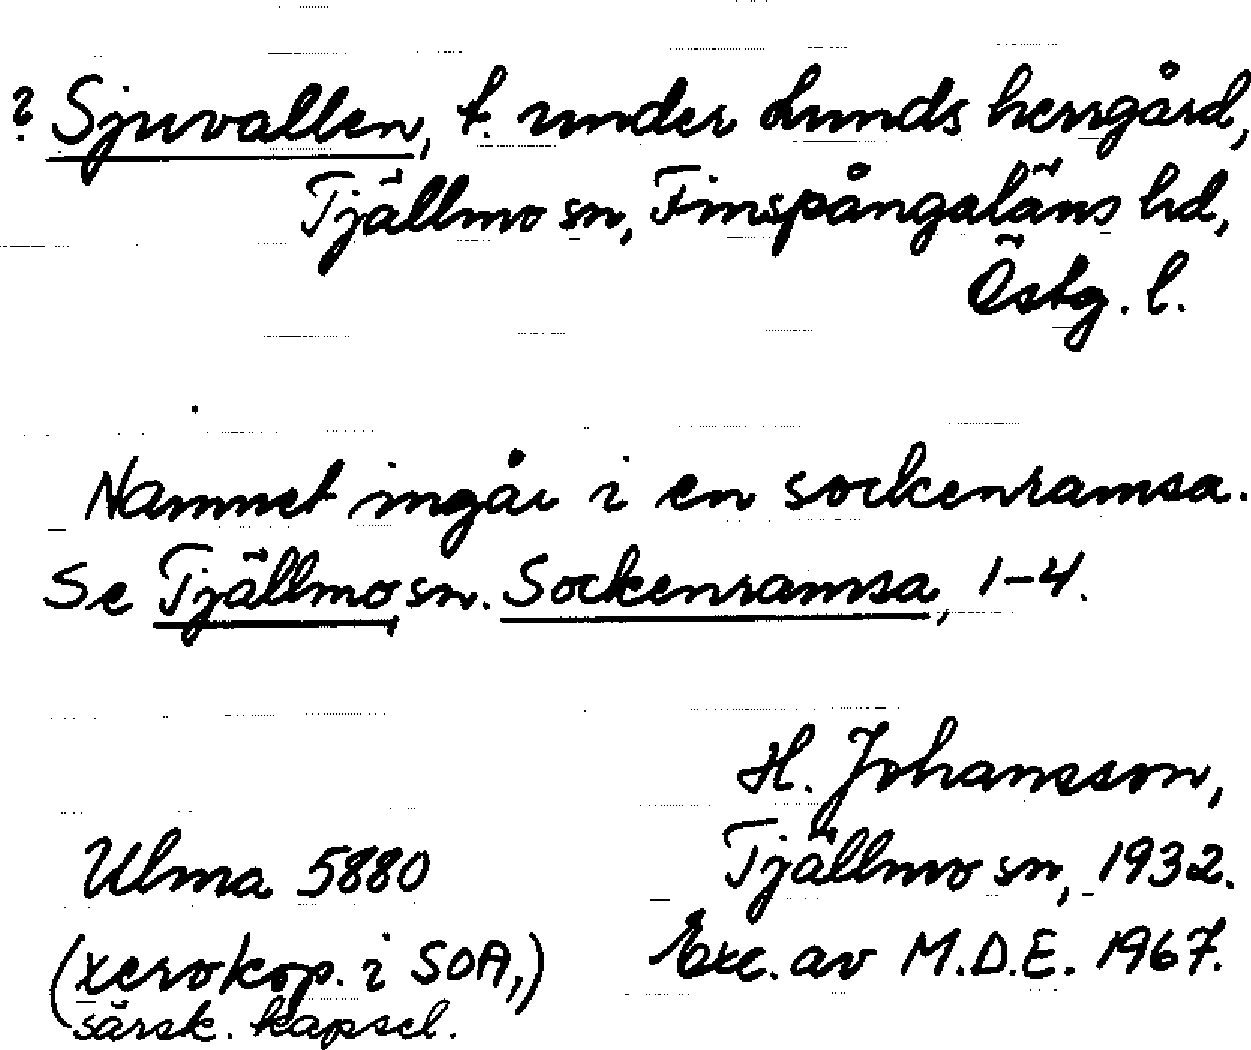 ? Sjuvallen, t. under Lunds herrgård,
Tjällmo sn, Finspångaläns hd,
Östg. l.
Namnet ingår i en sockenramsa.
Se Tjällmo sn. Sockenramsa, 1-4.
H. Johansson,
Tjällmo sn, 1932.
Ulma 5880
Exc. av M.D.E. 1967.
(xerokop. i SOA,)
särsk. kapsel.